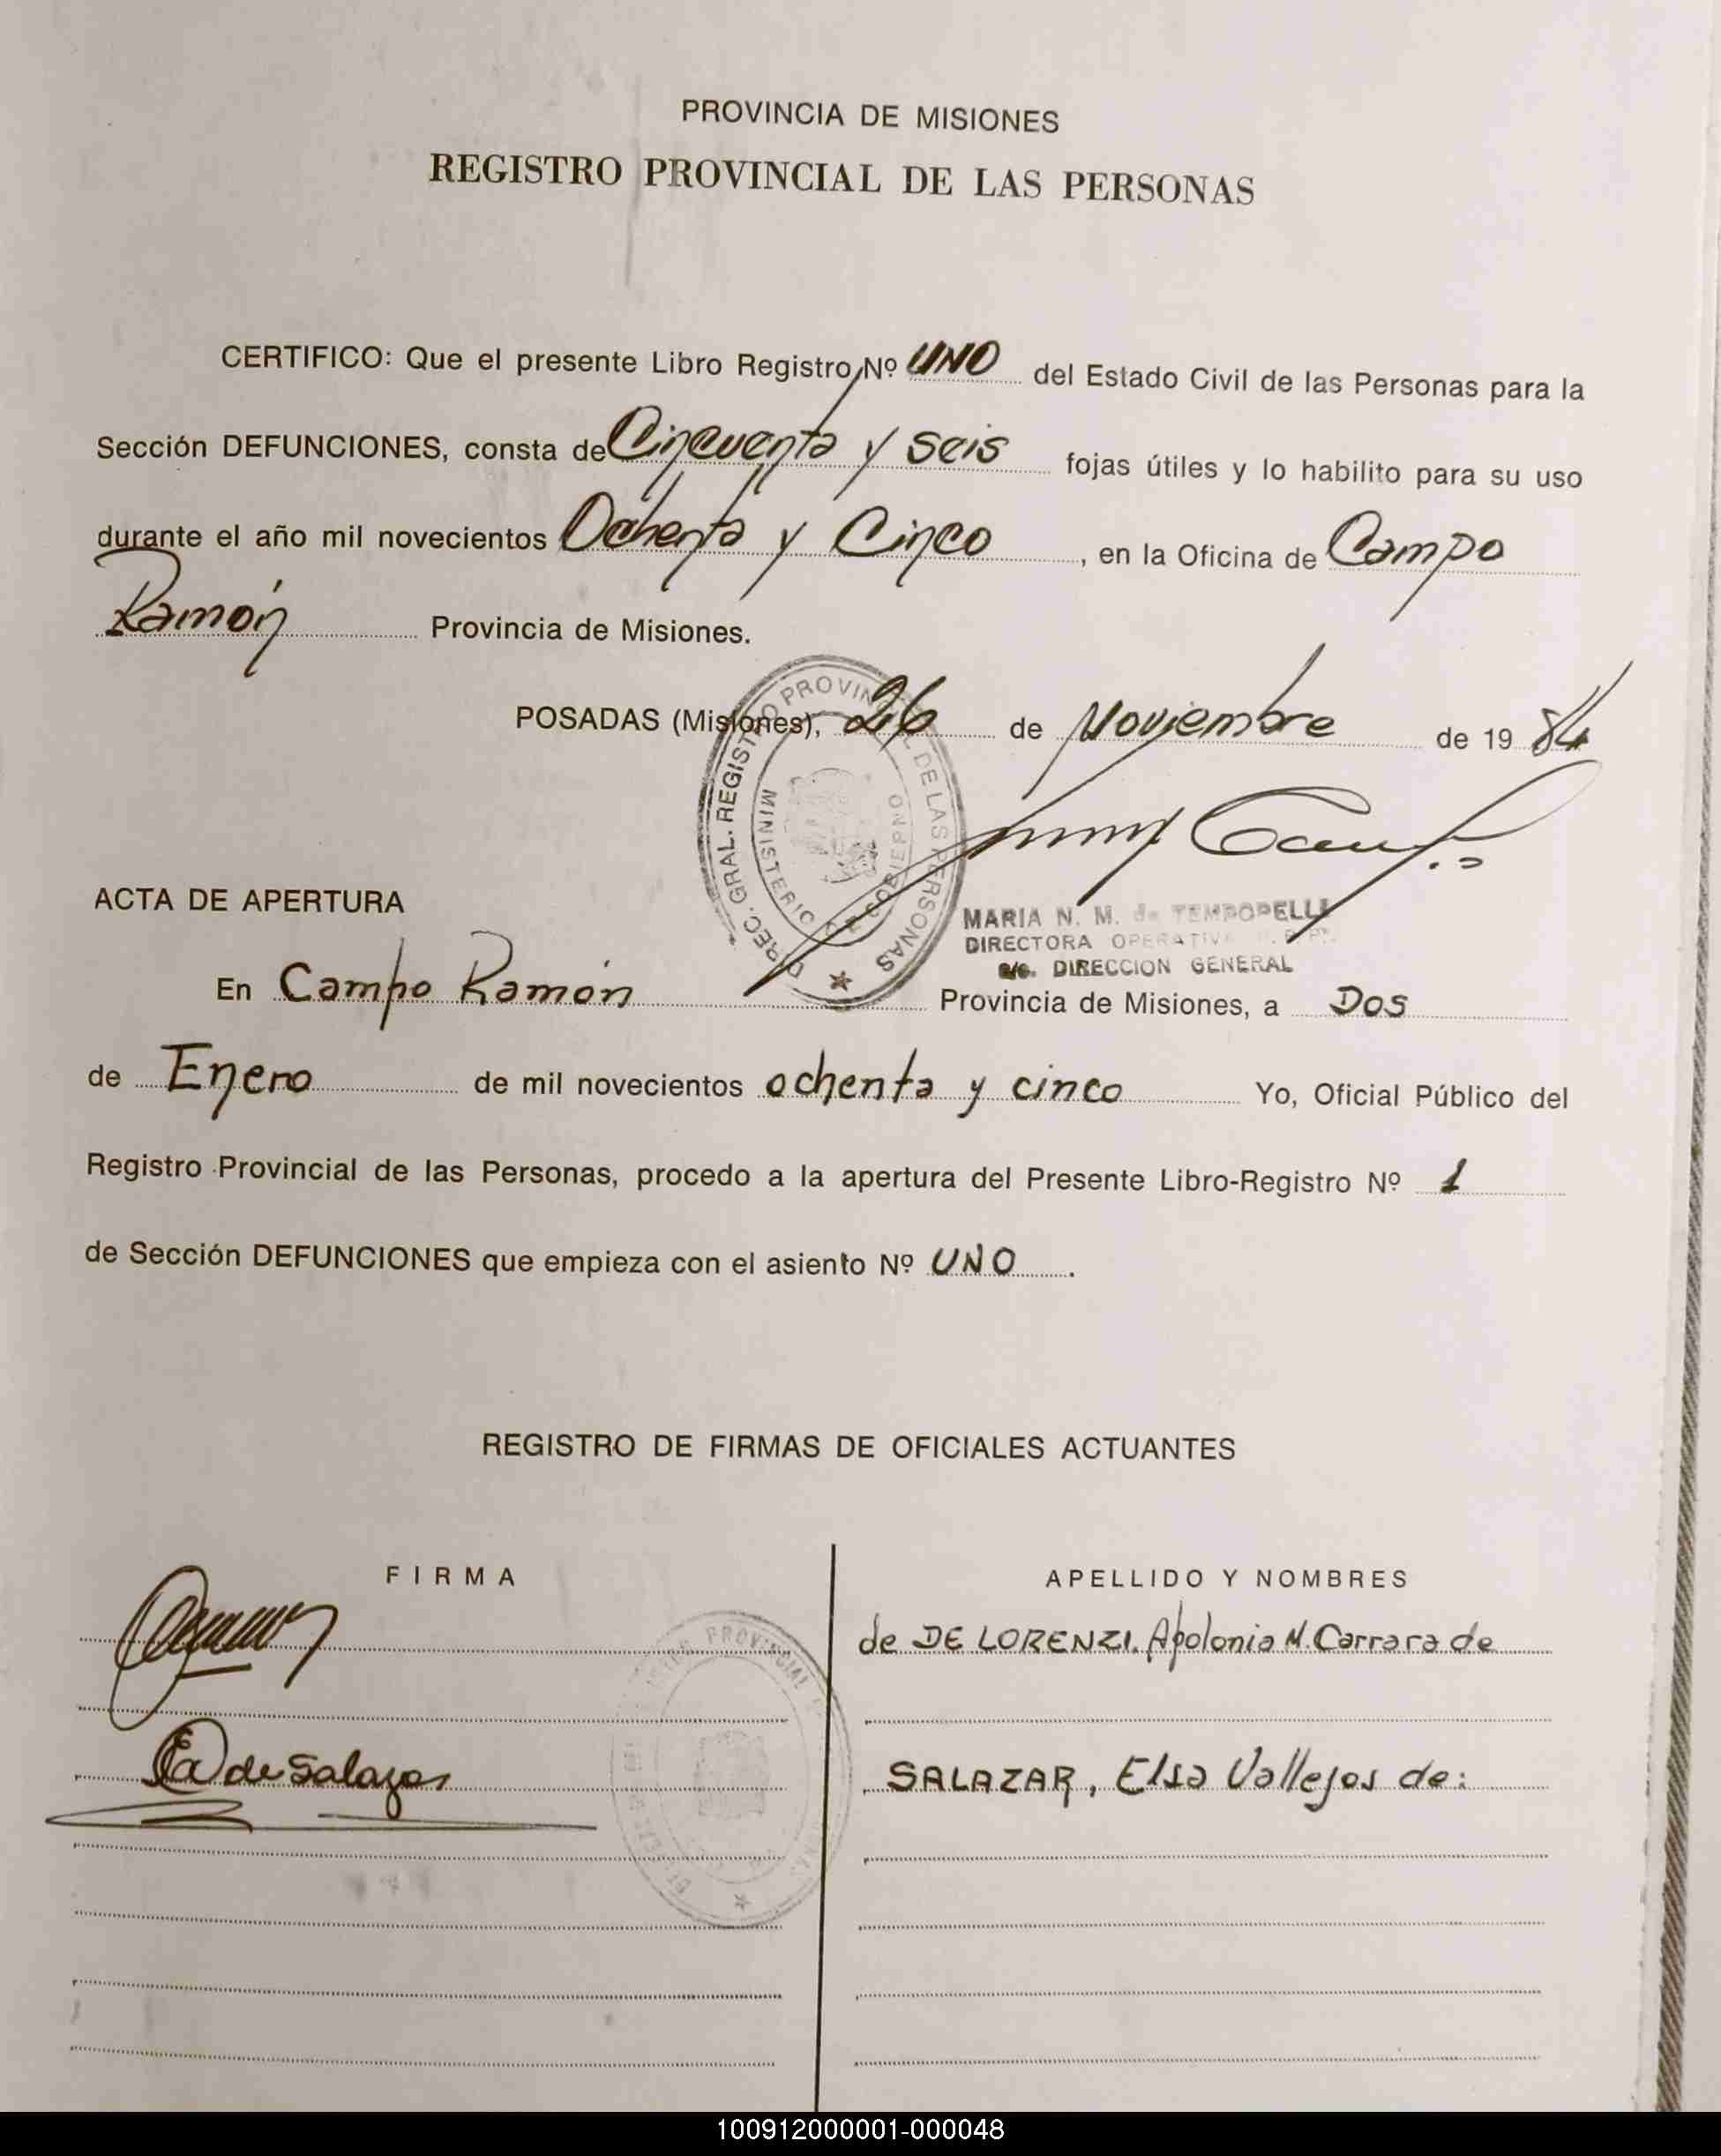 PROVINCIA DE MISIONES
REGISTRO PROVINCIAL DE LAS PERSONAS
CERTIFICO: Que el presente Libro Registro Nº UNO del Estado Civil de las Personas para la
Sección DEFUNCIONES, consta de Cincuenta y seis fojas útiles y lo habilito para su uso
durante el año mil novecientos Ochenta y Cinco, en la Oficina de Campo
Ramón Provincia de Misiones.
POSADAS (Misiones), 26 de Noviembre de 19 84
DIREC. GRAL. REGISTRO PROVINCIAL DE LAS PERSONAS
MINISTERIO DE GOBIERNO
MARIA N. M. de
DIRECTORA OPERATIVA
a/c. DIRECCION GENERAL
ACTA DE APERTURA
En Campo Ramón Provincia de Misiones, a Dos
de Enero de mil novecientos ochenta y cinco Yo, Oficial Público del
Registro Provincial de las Personas, procedo a la apertura del Presente Libro-Registro Nº 1
de Sección DEFUNCIONES que empieza con el asiento Nº UNO.
REGISTRO DE FIRMAS DE OFICIALES ACTUANTES
FIRMA APELLIDO Y NOMBRES
de DE LORENZI. Apolonia M. Carrara de
de Salazar SALAZAR, Elsa Vallejos de:
PROVINCIAL
100912000001-000048